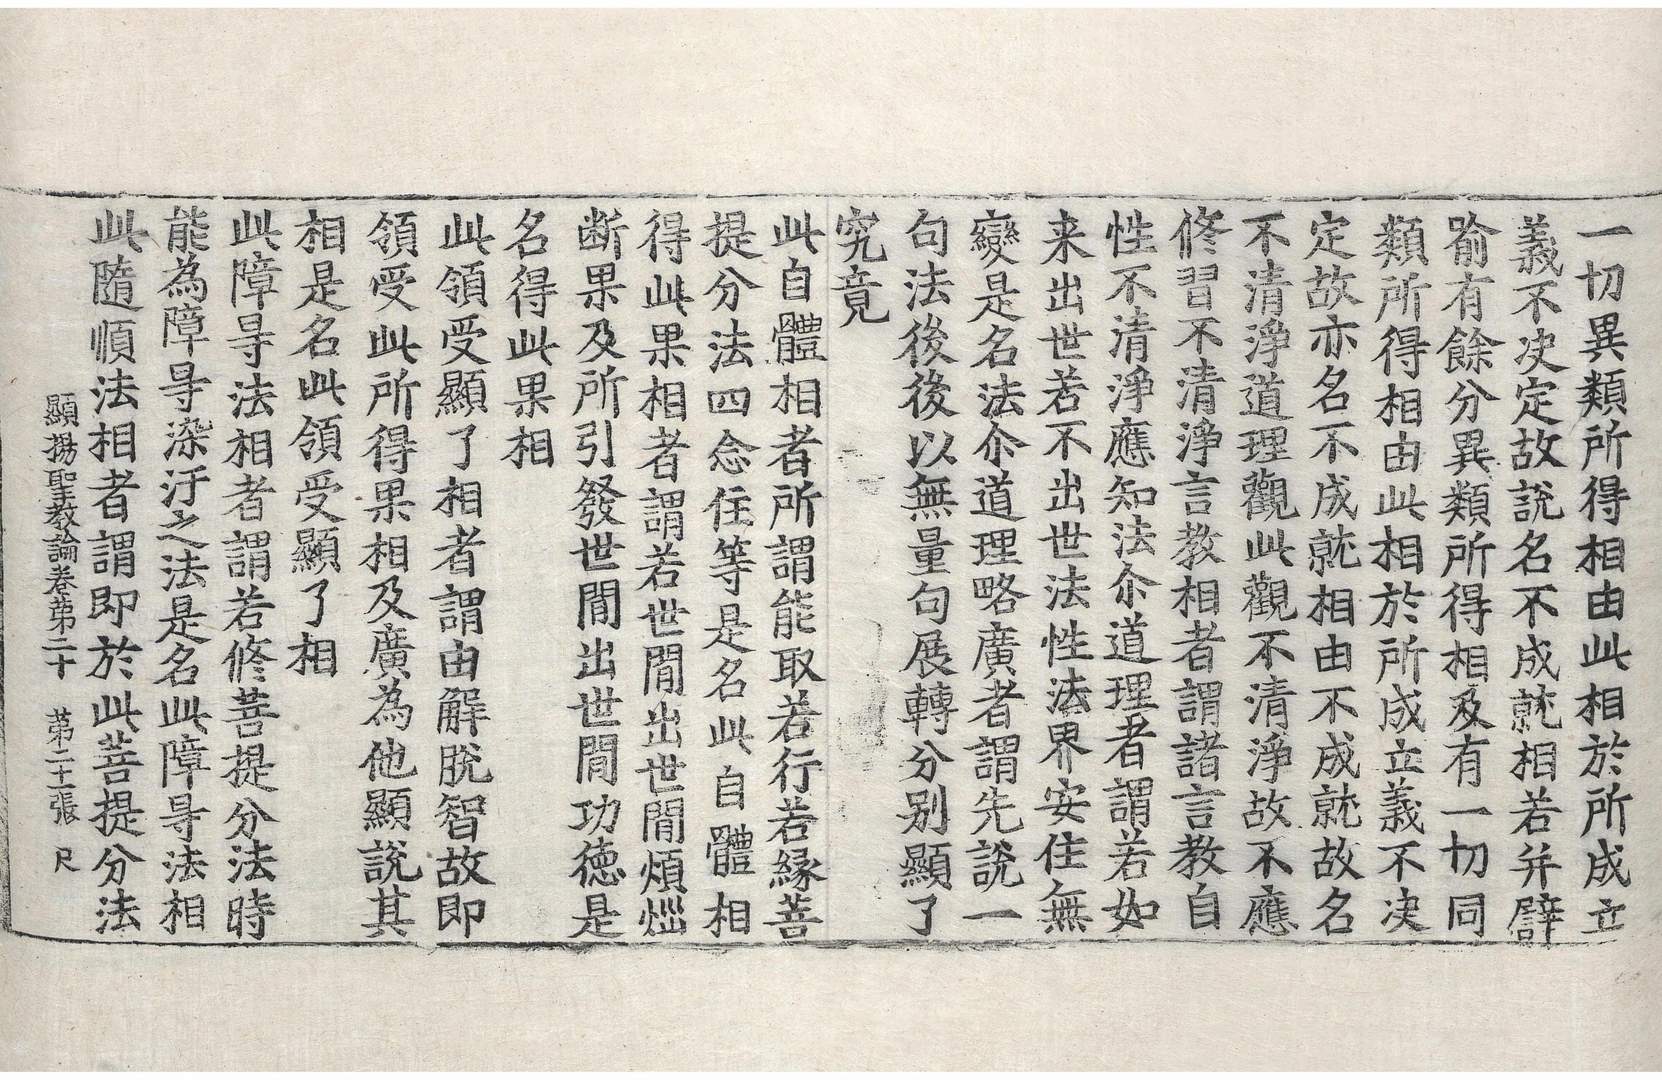 一切異類所得相由此相於所成立
義不决定故說名不成就相若并譬
喻有餘分異類所得相及有一切同
類所得相由此相於所成立義不决
定故亦名不成就相由不成就故名
不清淨道理觀此觀不清淨故不應
修習不清淨言教相者謂諸言教自
性不清淨應知法尒道理者謂若如
来出世若不出世法性法界安住無
變是名法尒道理略廣者謂先說一
句法後後以無量句展轉分别顯了
究竟
此自體相者所謂能取若行若緣菩
提分法四念住等是名此自體相
得此果相者謂若世間出世間煩𢙉
断果及所引發世間出世間功德是
名得此果相
此領受顯了相者謂由解脫智故即
領受此所得果相及廣為他顯說其
相是名此領受顯了相
此障㝵法相者謂若修菩提分法時
能為障㝵染汙之法是名此障㝵法相
此隨順法相者謂即於此菩提分法
顯揚聖教論卷苐二十　苐二十張　尺